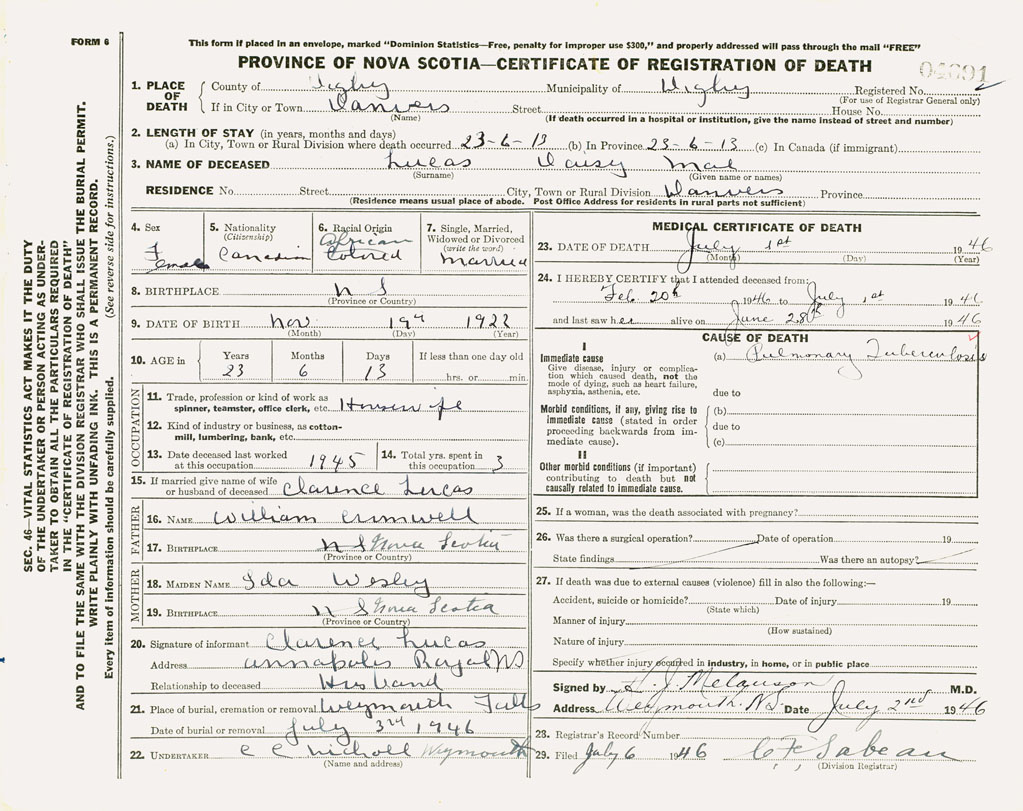 FORM 6
This form if placed in an envelope, marked "Dominion Statistics—Free, penalty for improper use $300," and properly addressed will pass through the mail "FREE"
PROVINCE OF NOVA SCOTIA—CERTIFICATE OF REGISTRATION OF DEATH
SEC. 46—VITAL STATISTICS ACT MAKES IT THE DUTY
OF THE UNDERTAKER OR PERSON ACTING AS UNDER-
TAKER TO OBTAIN ALL THE PARTICULARS REQUIRED
IN THE "CERTIFICATE OF REGISTRATION OF DEATH"
AND TO FILE THE SAME WITH THE DIVISION REGISTRAR WHO SHALL ISSUE THE BURIAL PERMIT.
WRITE PLAINLY WITH UNFADING INK. THIS IS A PERMANENT RECORD.
Every item of information should be carefully supplied. (See reverse side for instructions.)
1. PLACE OF DEATH
County of Digby Municipality of Digby Registered No. 2
(For use of Registrar General only)
If in City or Town Danvers Street House No.
(Name) (If death occurred in a hospital or institution, give the name instead of street and number)
2. LENGTH OF STAY (in years, months and days)
(a) In City, Town or Rural Division where death occurred 23-6-13 (b) In Province 23-6-13 (c) In Canada (if immigrant)
3. NAME OF DECEASED Lucas Daisy Mae
(Surname) (Given name or names)
RESIDENCE No. Street City, Town or Rural Division Danvers Province
(Residence means usual place of abode. Post Office Address for residents in rural parts not sufficient)
4. Sex
F
Female
5. Nationality
(Citizenship)
Canadian
6. Racial Origin
African
Colored
7. Single, Married, Widowed or Divorced
(write the word)
Married
8. BIRTHPLACE N S
(Province or Country)
9. DATE OF BIRTH Nov 19th 1922
(Month) (Day) (Year)
10. AGE in Years Months Days If less than one day old
23 6 13 hrs. or min.
OCCUPATION
11. Trade, profession or kind of work as
spinner, teamster, office clerk, etc. Housewife
12. Kind of industry or business, as cotton-
mill, lumbering, bank, etc.
13. Date deceased last worked
at this occupation 1945
14. Total yrs. spent in
this occupation 3
15. If married give name of wife
or husband of deceased Clarence Lucas
FATHER
16. NAME William
17. BIRTHPLACE N S Nova Scotia
(Province or Country)
MOTHER
18. MAIDEN NAME Ida Wesley
19. BIRTHPLACE N S Nova Scotia
(Province or Country)
20. Signature of informant Clarence Lucas
Address Annapolis Royal NS
Relationship to deceased Husband
21. Place of burial, cremation or removal Weymouth Falls
Date of burial or removal July 3rd 1946
22. UNDERTAKER Weymouth
(Name and address)
MEDICAL CERTIFICATE OF DEATH
23. DATE OF DEATH July 1st 1946
(Month) (Day) (Year)
24. I HEREBY CERTIFY that I attended deceased from:
Feb 20th 1946 to July 1st 1946
and last saw her alive on June 28th 1946
CAUSE OF DEATH
I
Immediate cause
Give disease, injury or complica-
tion which caused death, not the
mode of dying, such as heart failure,
asphyxia, asthenia, etc.
(a) Pulmonary Tuberculosis
due to
Morbid conditions, if any, giving rise to
immediate cause (stated in order
proceeding backwards from im-
mediate cause).
(b)
due to
(c)
II
Other morbid conditions (if important)
contributing to death but not
causally related to immediate cause.
25. If a woman, was the death associated with pregnancy?
26. Was there a surgical operation? Date of operation 19
State findings Was there an autopsy?
27. If death was due to external causes (violence) fill in also the following:—
Accident, suicide or homicide? Date of injury 19
(State which)
Manner of injury
(How sustained)
Nature of injury
Specify whether injury occurred in industry, in home, or in public place
Signed by M.D.
Address Weymouth. N.S. Date July 2nd 1946
28. Registrar's Record Number
29. Filed July 6 1946 C F Sabean
(Division Registrar)